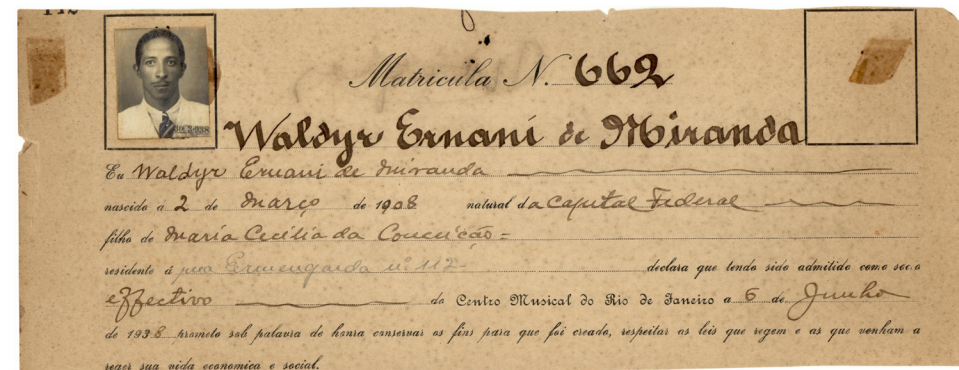 112
Matricula N. 662
Waldyr Ernani de Miranda
Eu Waldyr Ernani de Miranda
nascido a 2 de Março de 1908 natural da Capital Federal
filho de Maria Cecilia da Conceição =
residente á rua Ermengarda nº 112 declara que tendo sido admitido como socio
effectivo do Centro Musical do Rio de Janeiro a 6 de Junho
de 1938 prometo sob palavra de honra conservar os fins para que foi creado, respeitar as leis que regem e as que venham a
reger sua vida economica e social.